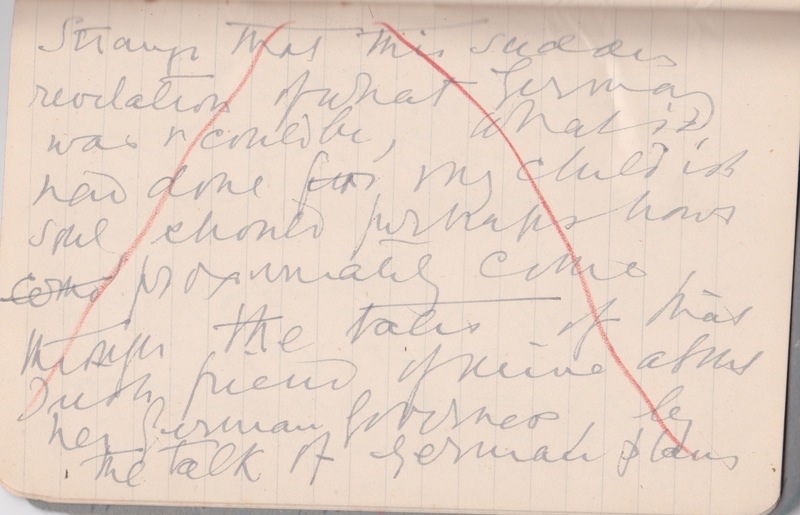 Strange that this sudden
revelation of what Germany
was or could be, what it
had done for my childish
soul should perhaps have
proximately come
through the tales of that
Dutch friend of mine about
her German governess, by
the talk of German plans